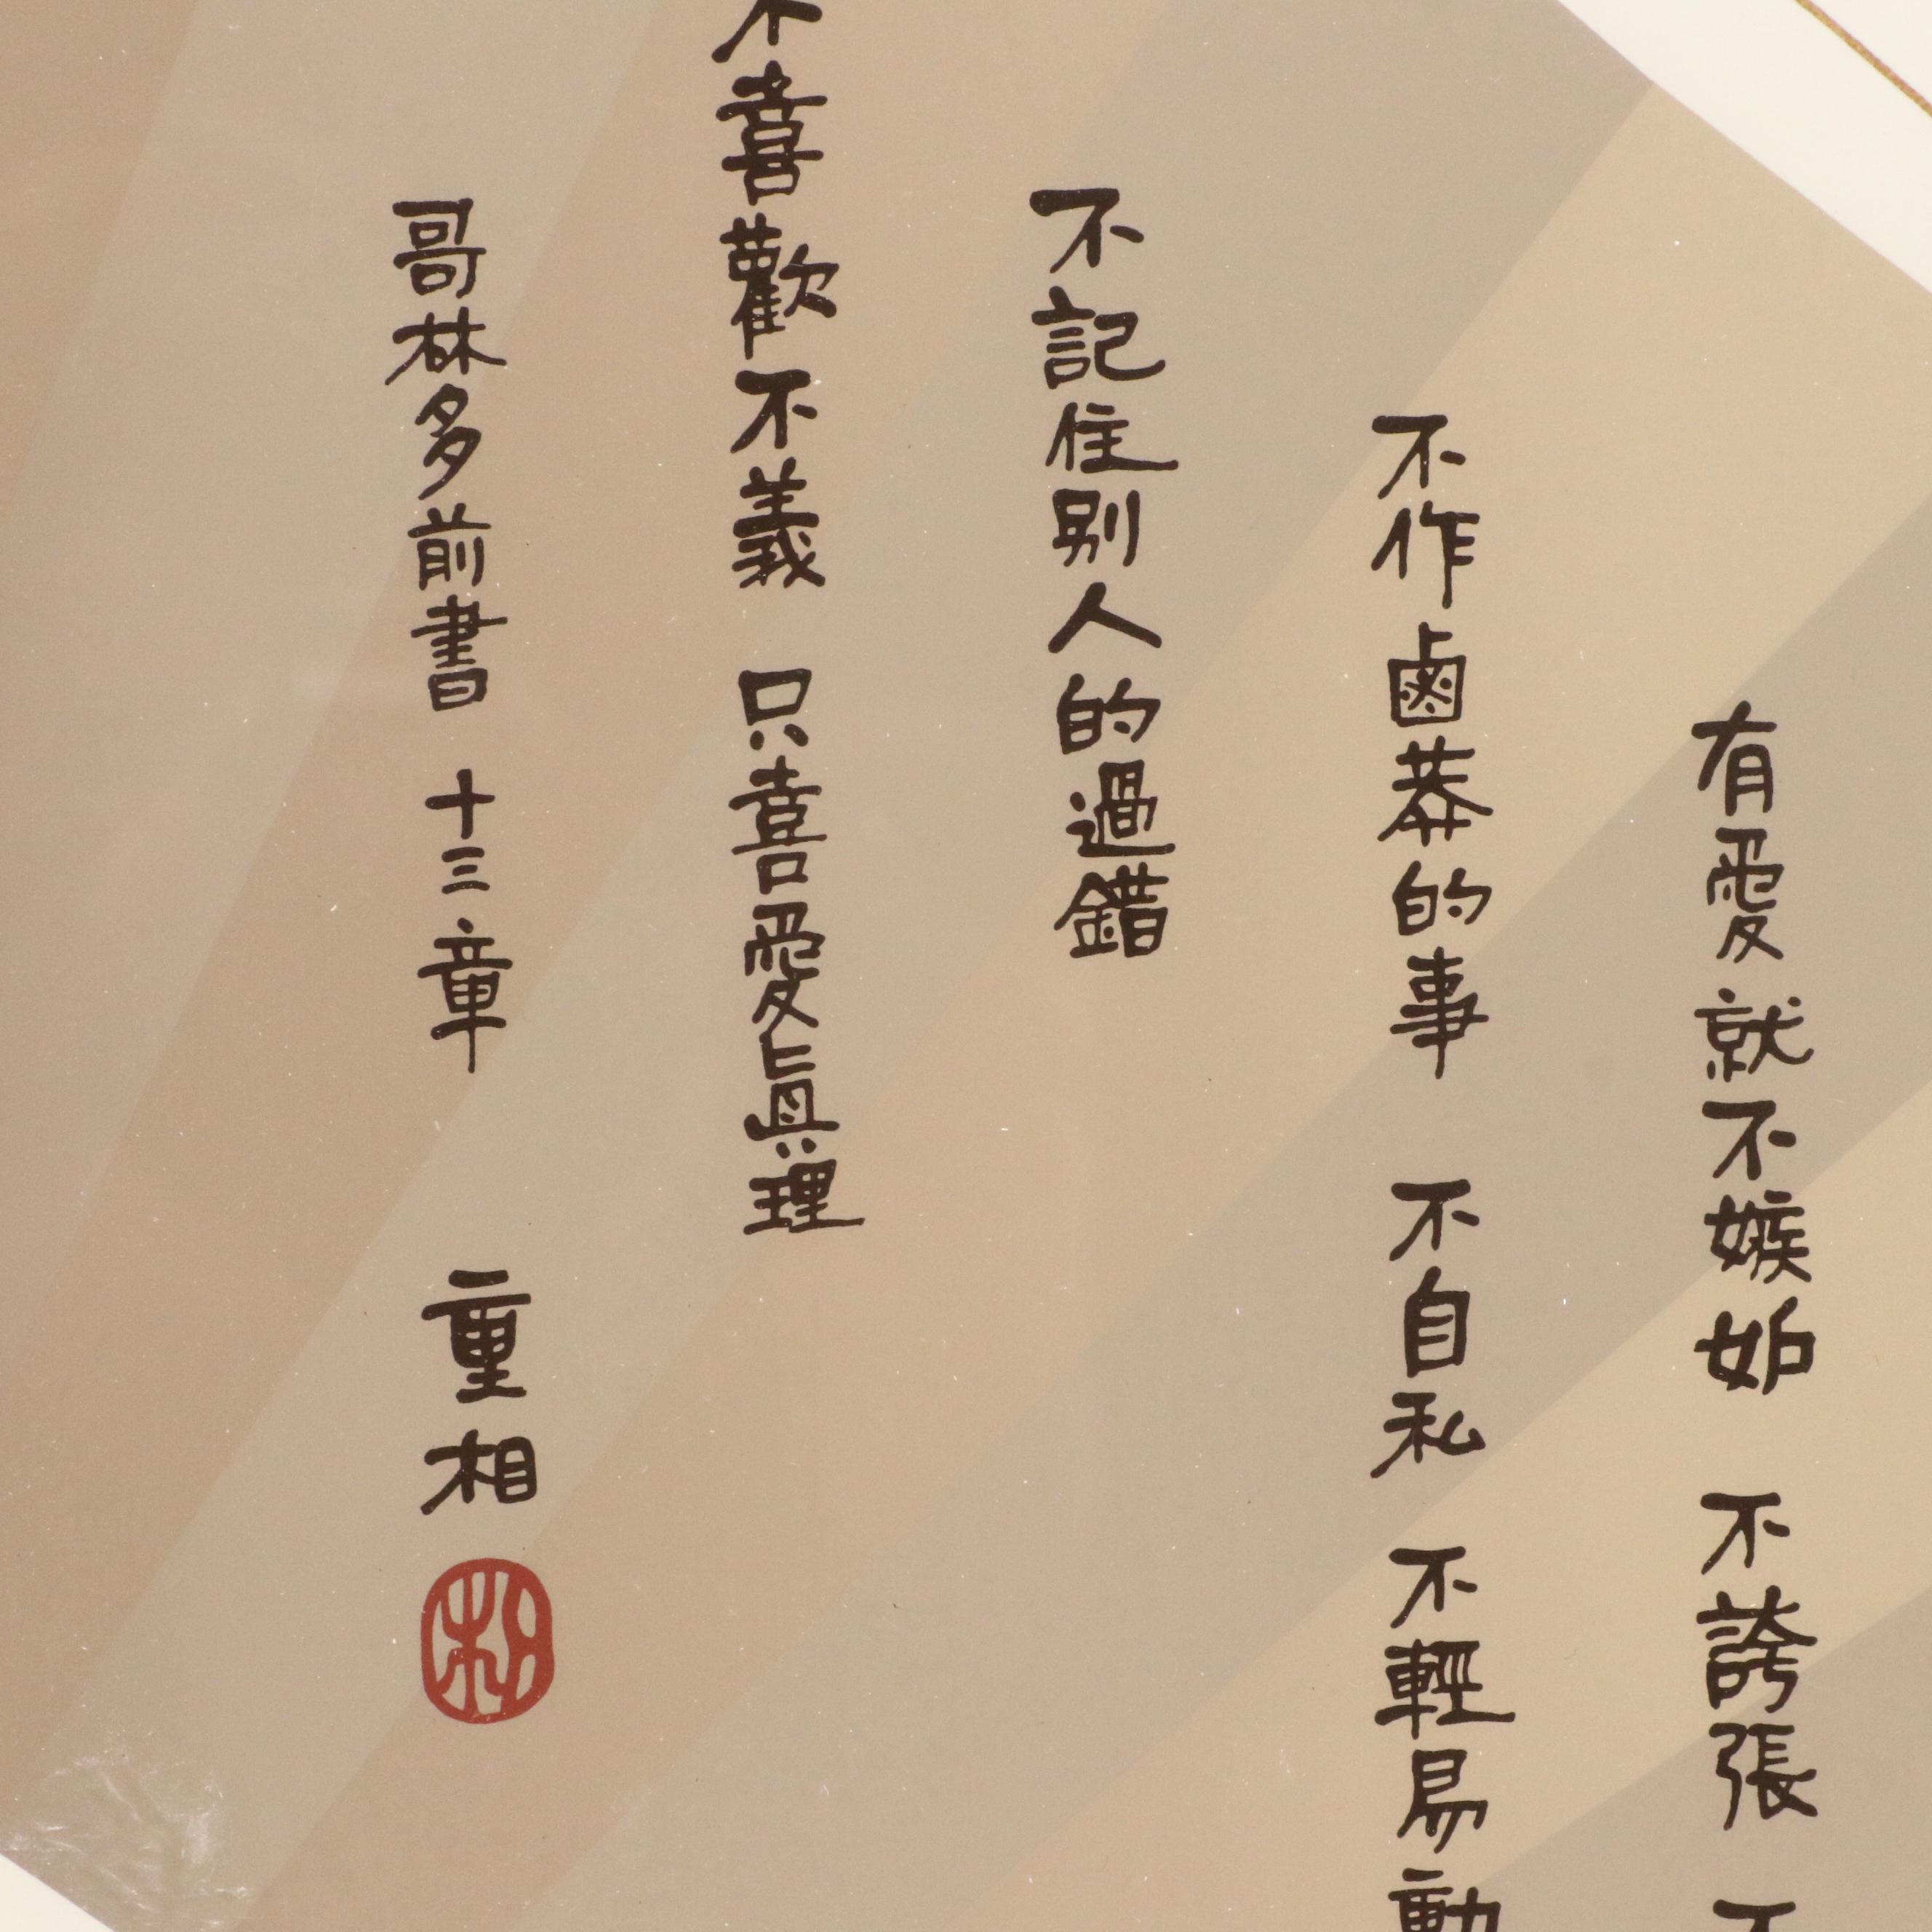 有愛就不嫉妒 不誇張 不
不作鹵莽的事 不自私 不輕易動
不記住別人的過錯
不喜歡不義 只喜愛眞理
哥林多前書 十三章 重相